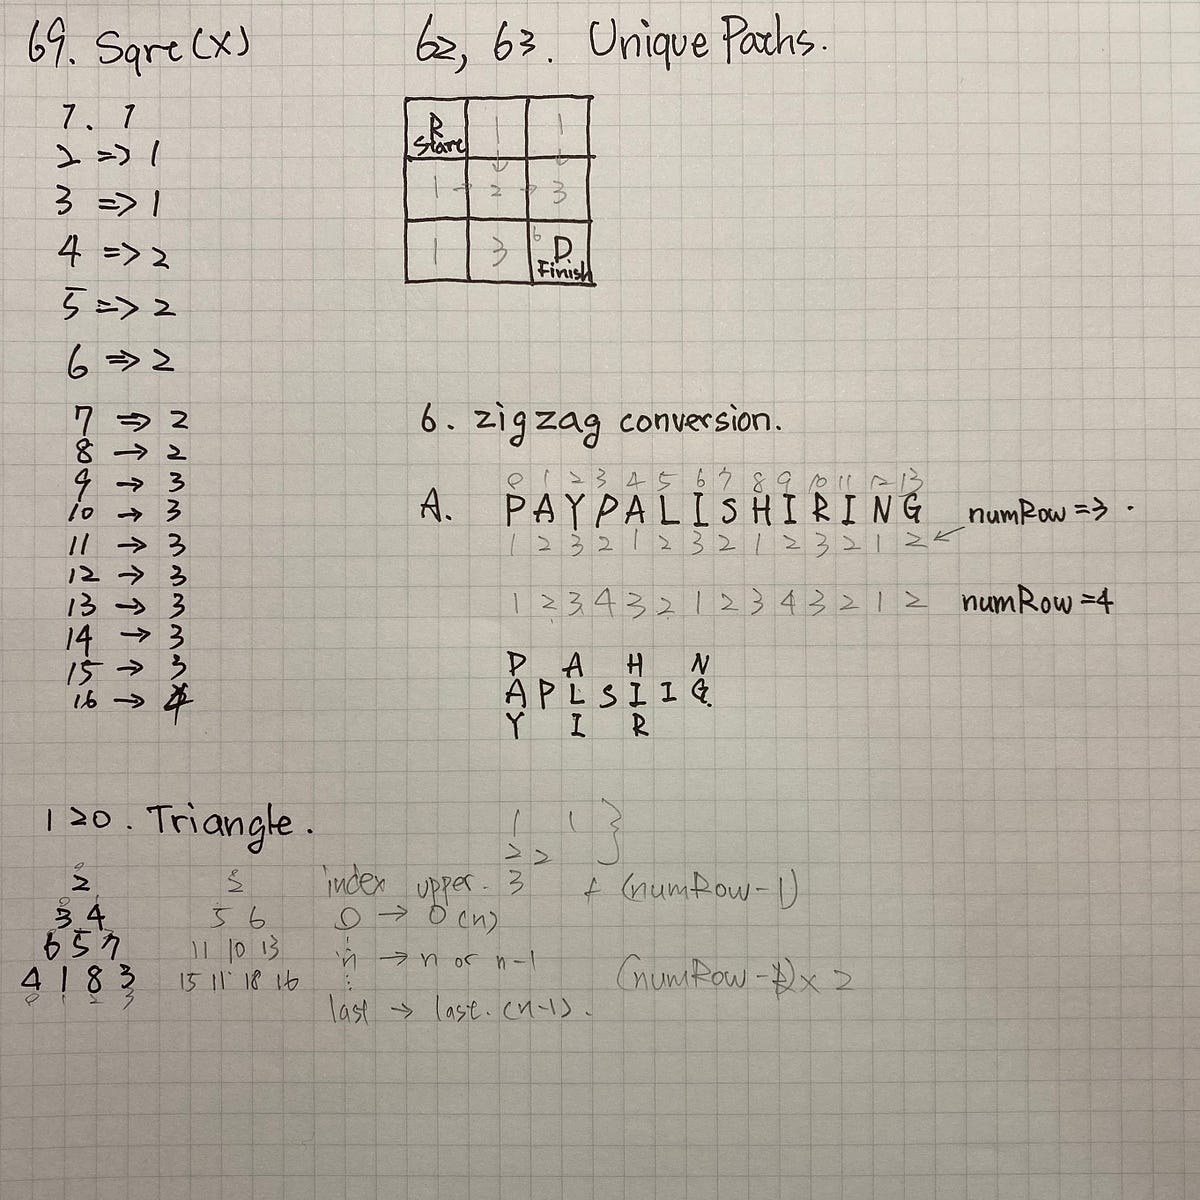 69. Sqrt(x)
1. 1
2 => 1
3 => 1
4 => 2
5 => 2
6 => 2
7 => 2
8 → 2
9 → 3
10 → 3
11 → 3
12 → 3
13 → 3
14 → 3
15 → 3
16 → 4
62, 63. Unique Paths.
R 1 1
Start
1 → 2 → 3
1 3 6 D.
Finish
6. zigzag conversion.
0 1 2 3 4 5 6 7 8 9 10 11 12 13
A. P A Y P A L I S H I R I N G numRow = 3.
1 2 3 2 1 2 3 2 1 2 3 2 1 2
1 2 3 4 3 2 1 2 3 4 3 2 1 2 numRow = 4
P A H N
A P L S I I G
Y I R
1 1 }
2 2
3 + (numRow - 1)
(numRow - 1) x 2
120. Triangle.
0
2
0 1
3 4
6 5 7
4 1 8 3
0 1 2 3
2
5 6
11 10 13
15 11 18 16
index upper.
0 → 0 (n)
⋮
n → n or n-1
⋮
last → last. (n-1).